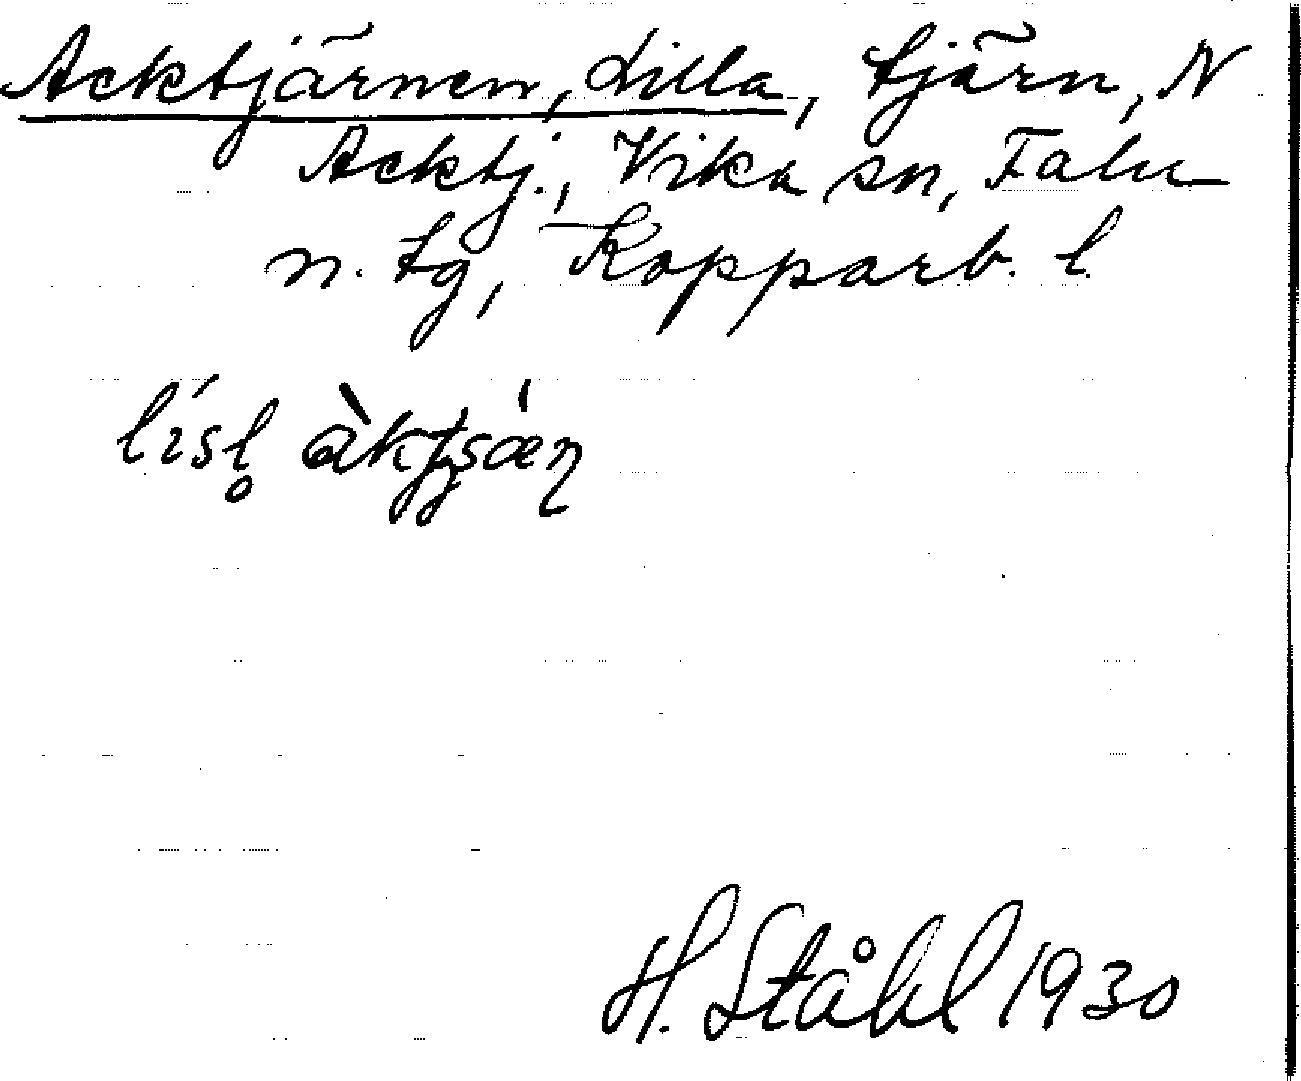 Acktjärnen, Lilla, tjärn, N
Acktj., Vika sn, Falu
n. tg, Kopparb. l.
H. Ståhl 1930